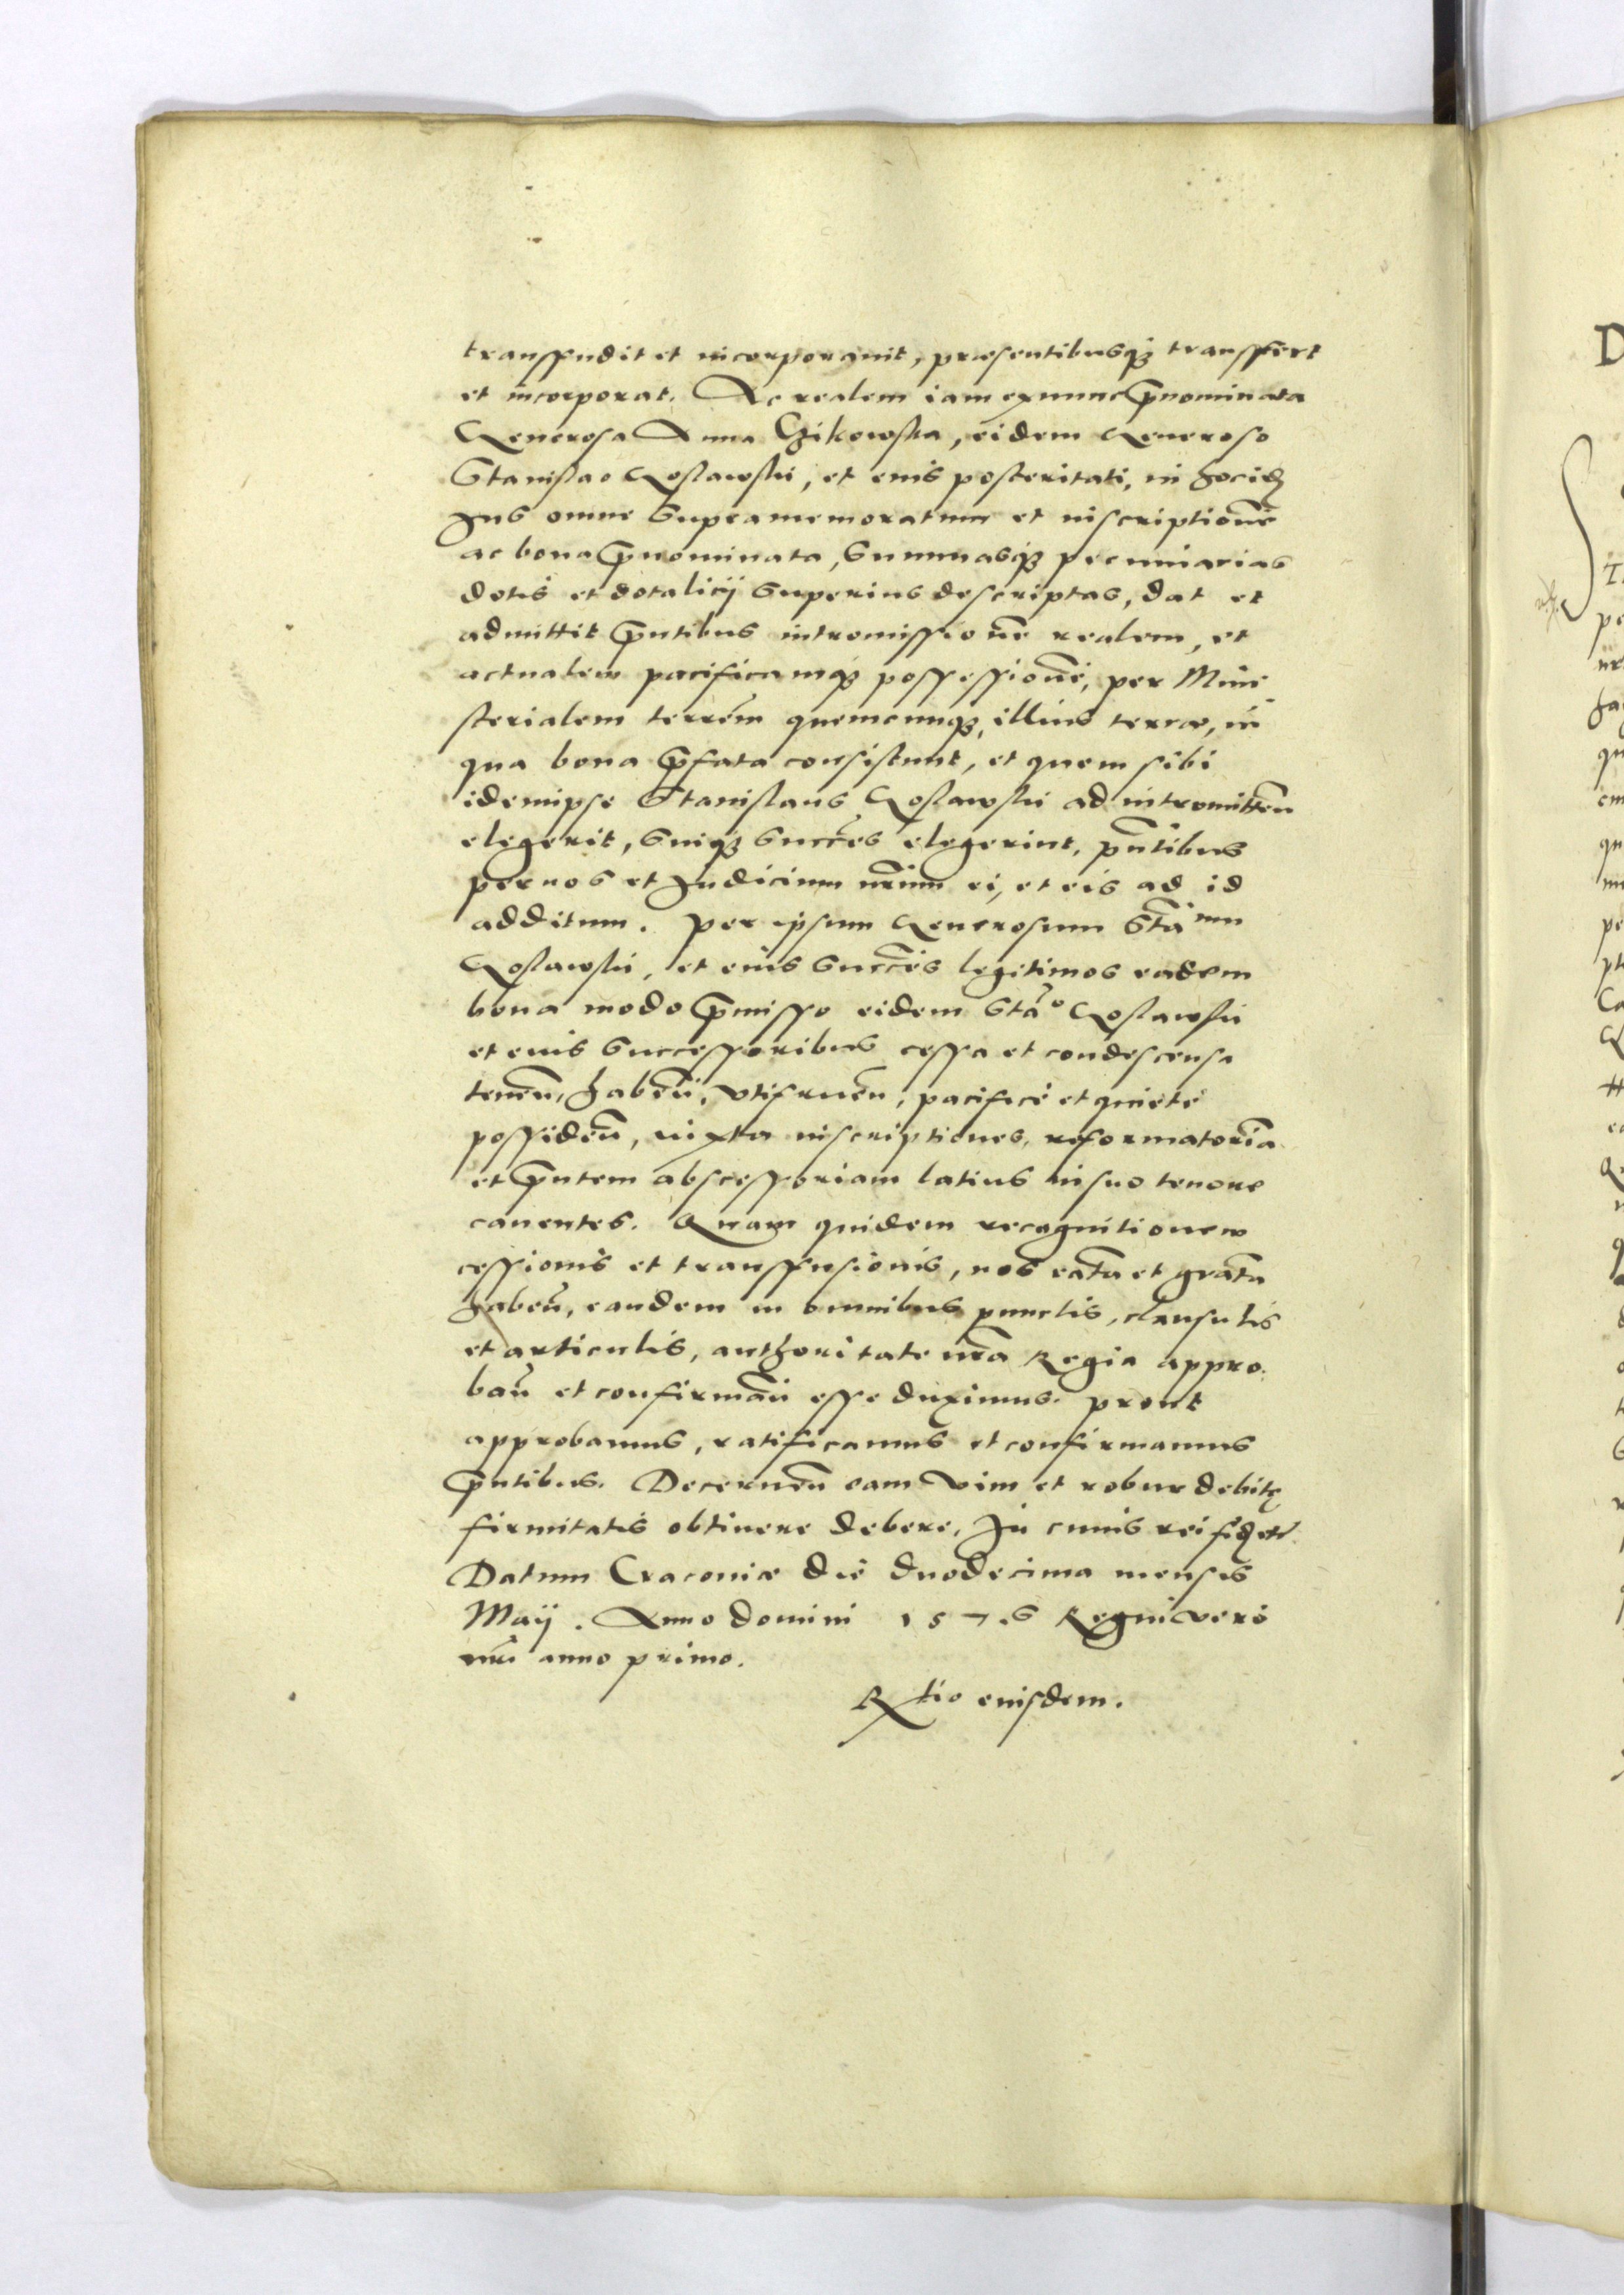 transfundit et incorporavit, præsentibusq3 transffert
et incorporat. Ac realem iam exnunc pnominata
Generosa Anna Czikowska, eidem Generoso
Stanislao Goslawski, et eius posteritati, in
Jus omne supramemoratum et inscriptionē
ac bona pnominata, summasq3 pecuniarias
dotis et dotalicij superius descriptas, dat et
admittit pntibus intromissionē realem, et
actualem pacificamq3 possessionē, per Mini
sterialem terrēm quemcunq3, illius terræ, in
qua bona pfata consistunt, et quem sibi
idemipse Stanislaus Goslawski ad intromittēn
elegerit, suiq3 succēs elegerint, pntibus
per nos et Judicium nrūm ei, et eis ad id
additum. Per ipsum Generosum Stāum
Goslawski, et eius succēs legitimos eadem
bona modo pmisso eidem Stāo Goslawski
et eius successoribus cessa et condescensa
tenēn, habēn, vtifruēn, pacificè et quietè
possidēn, iuxta inscriptiones, reformatoriā
et pntem abscessoriam latius in suo tenore
canentes. Quam quidem recognitionem
cessionis et transfusionis, nos ratā et gratā
habēn, eandem in omnibus punctis, clausulis
et articulis, authoritate nrā Regia appro.
bān et confirmān esse duximus. prout
approbamus, ratificamus et confirmamus
pntibus. Decernēn eam vim et robur debitę
firmitatis obtinere debere. In cuius rei fid etc.
Datum Cracoviæ die duodecima mensis
Maij. Anno domini 1576 Regni verò
nrī anno primo.
Rtio eiusdem.